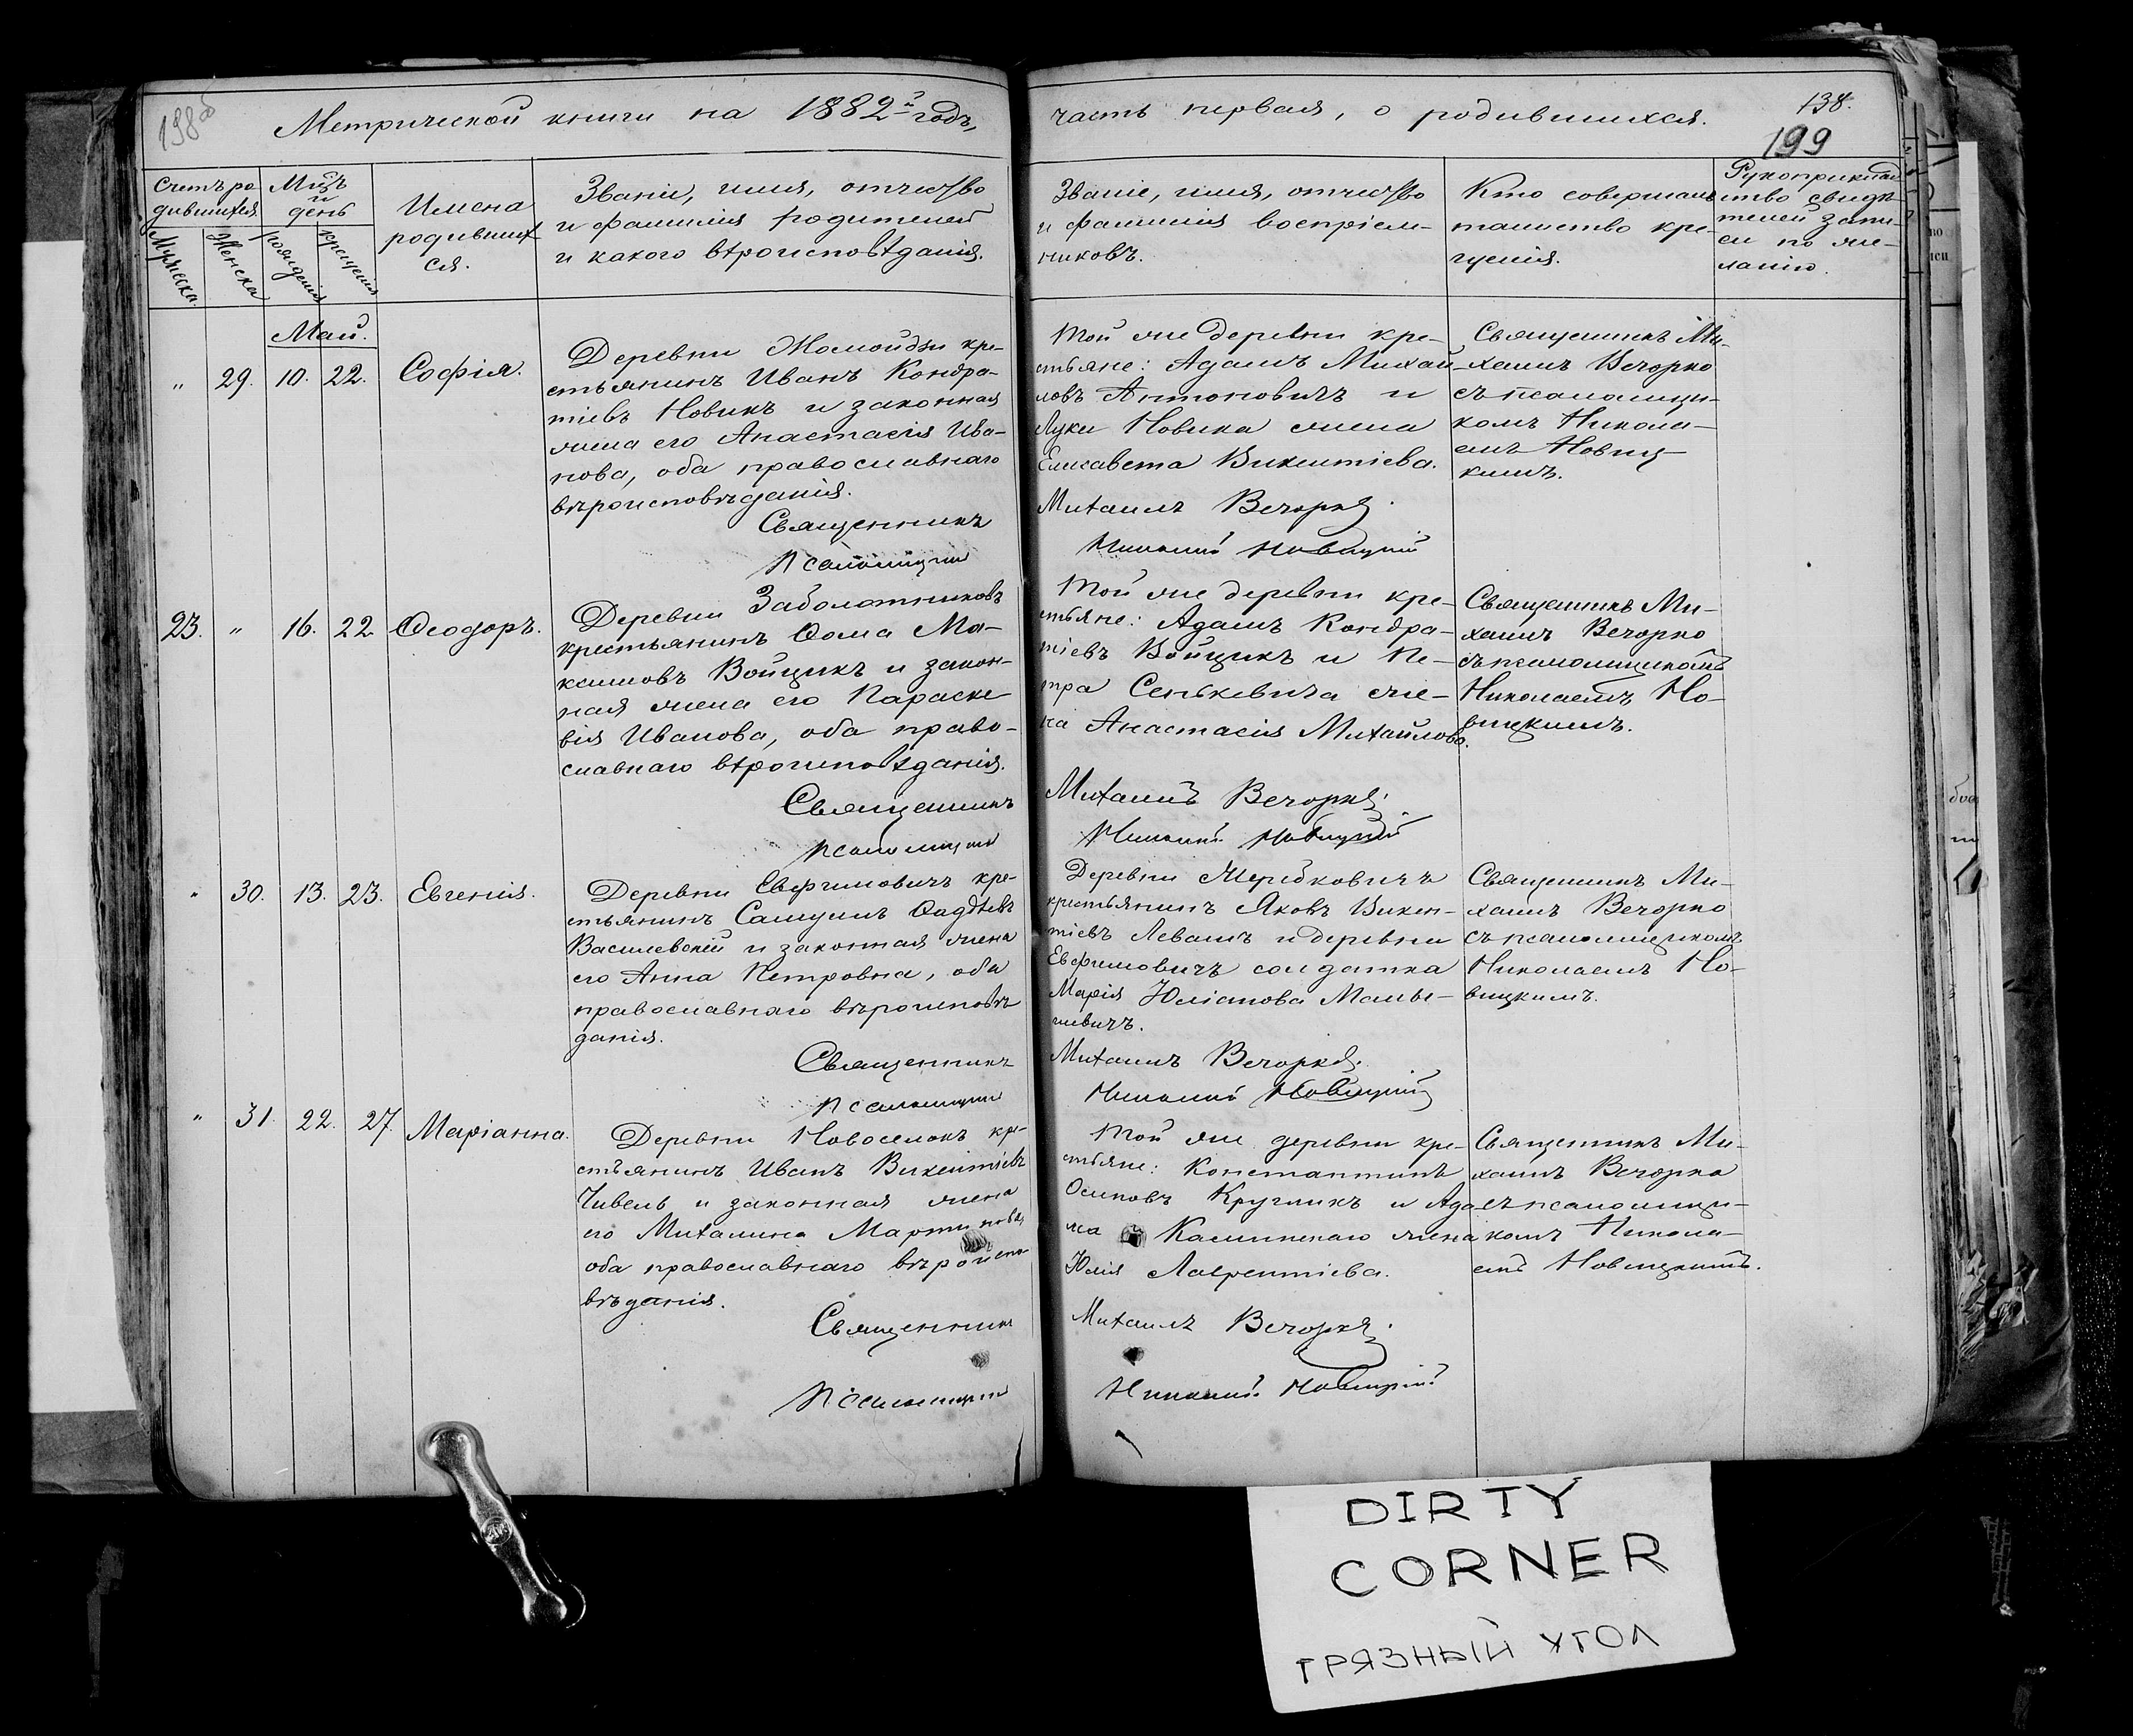 198об
Метрической книги на 1882й годъ,
часть первая, о родившихся.
138.
199
Счетъ ро
дившихся.
Мужеска.
Женска
Мѣцъ
и
день
рожденія
крещенія
Имена
родивших
ся.
Званіе, имя, отчество
и фамилія родителей
и какого вѣроисповѣданія.
Званіе, имя, отчество
и фамилія воспріем-
никовъ.
Кто совершалъ
таинство кре-
щенія.
Рукоприклад
ство свидѣ
телей запи-
си по же-
ланію.
Май.
„ 29. 10. 22. Софія.
Деревни Жомойдзи кре-
стьянинъ Иванъ Кондра-
тіевъ Новикъ и законная
жена его Анастасія Ива-
нова, оба православнаго
вѣроисповѣданія.
Священникъ
Псаломщикъ
Той же деревни кре-
стьяне: Адамъ Михай-
ловъ Антоновичъ и
Луки Новика жена
Елисавета Викентіева.
Михаилъ Вечорко.
Николай Новицкій
Священникъ Ми-
хаилъ Вечорко
съ псаломщи-
комъ Никола-
емъ Новиц-
кимъ.
23. „ 16. 22. Ѳеодоръ.
Деревни Заболотниковъ
крестьянинъ Ѳома Ма-
ксимовъ Войцикъ и закон-
ная жена его Параске
вія Иванова, оба право-
славнаго вѣроисповѣданія.
Священникъ
Псаломщикъ
Той же деревни кре-
стьяне: Адамъ Кондра-
тіевъ Войцикъ и Пе-
тра Сенькевича же-
на Анастасія Михайлова.
Михаилъ Вечорко.
Николай Новицкій
Священникъ Ми-
хаилъ Вечорко
съ псаломщикомъ
Николаемъ Но-
вицкимъ.
„ 30. 13. 23. Евгенія.
Деревни Евфимовичъ кре-
стьянинъ Самуилъ Ѳадѣевъ
Василевскій и законная жена
его Анна Петровна, оба
православнаго вѣроисповѣ
данія.
Священникъ
Псаломщикъ
Деревни
крестьянинъ Яковъ Викен-
тіевъ Левашъ и деревни
Евфимовичъ солдатка
Марія Юліанова
Михаилъ Вечорко.
Николай Новицкій
Священникъ Ми-
хаилъ Вечорко
съ псаломщикомъ
Николаемъ Но-
вицкимъ.
„ 31. 22. 27. Маріанна.
Деревни Новоселокъ кре-
стьянинъ Иванъ Викентіевъ
Чивель и законная жена
его Михалина Мартинова,
оба православнаго вѣроиспо
вѣданія.
Священникъ
Псаломщикъ
Той же деревни кре-
стьяне: Константинъ
Осиповъ Кругликъ и Ада
ма Калинскаго жена
Юлія Лаврентіева.
Михаилъ Вечорко.
Николай Новицкій
Священникъ Ми-
хаилъ Вечорко
съ псаломщи-
комъ Никола-
емъ Новицкимъ.
DIRTY
CORNER
ГРЯЗНЫЙ УГОЛ